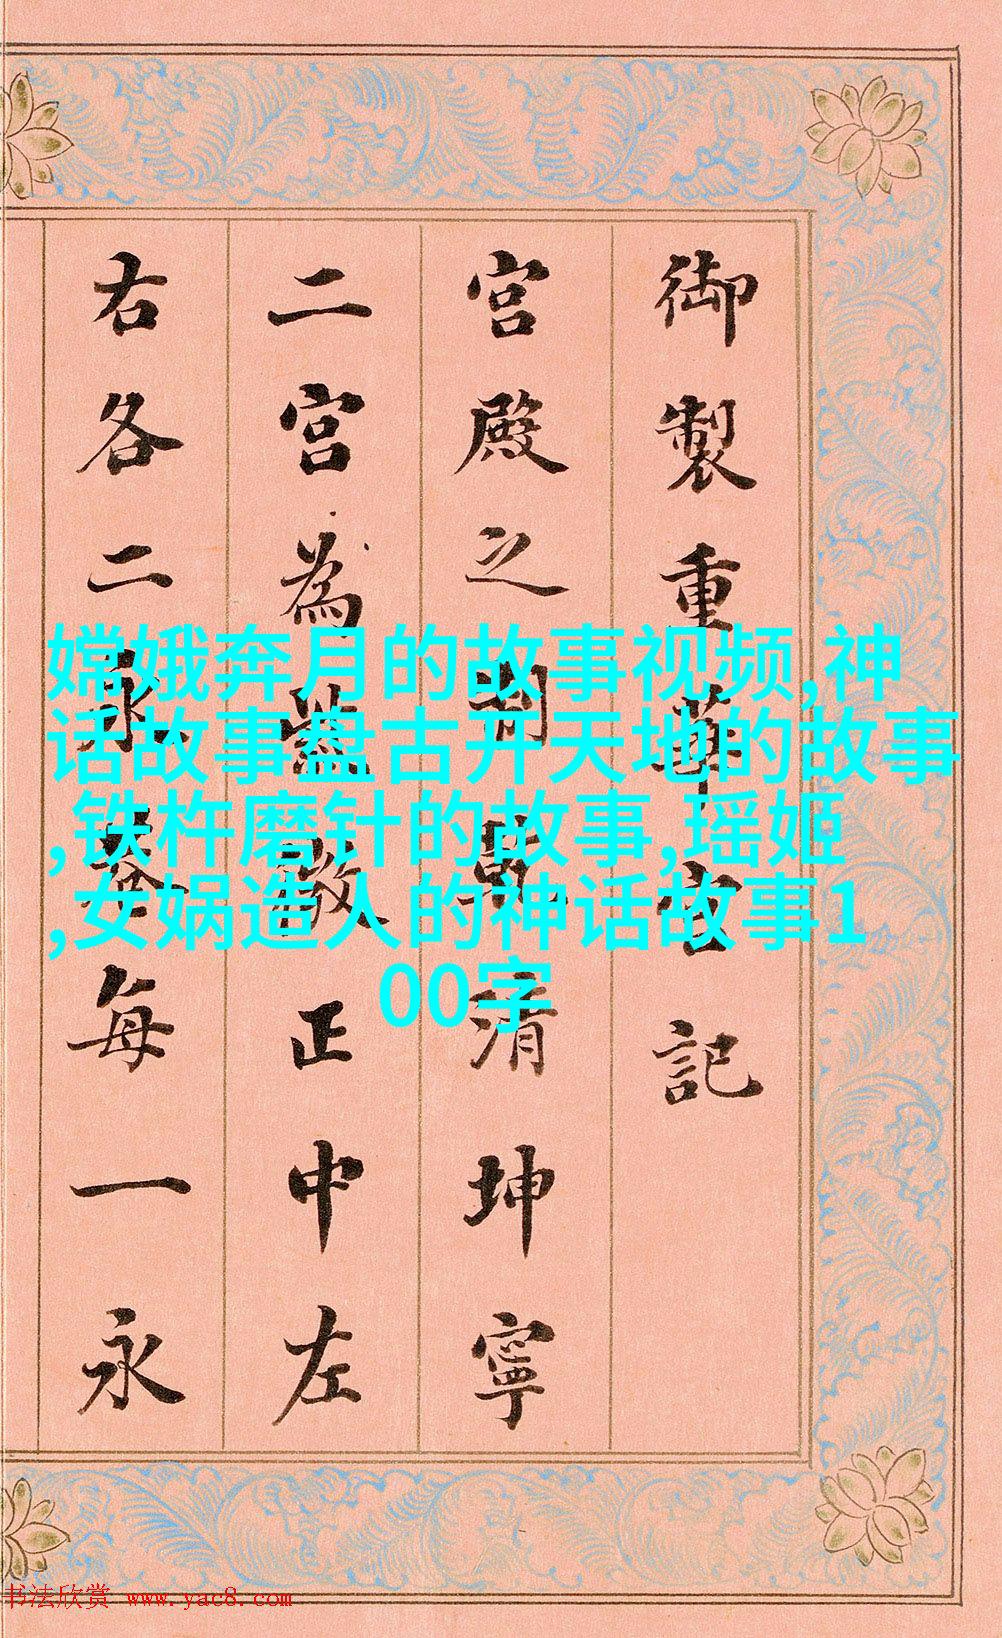 御製重華宮記
宮殿之間乾清坤寧
二宮為紫微正中左
右各二永巷每一永
嫦娥奔月的故事视频,神
话故事盘古开天地的故事
,铁杵磨针的故事,瑶姬
,女娲造人的神话故事1
00字
书法欣赏 www.yac8.com